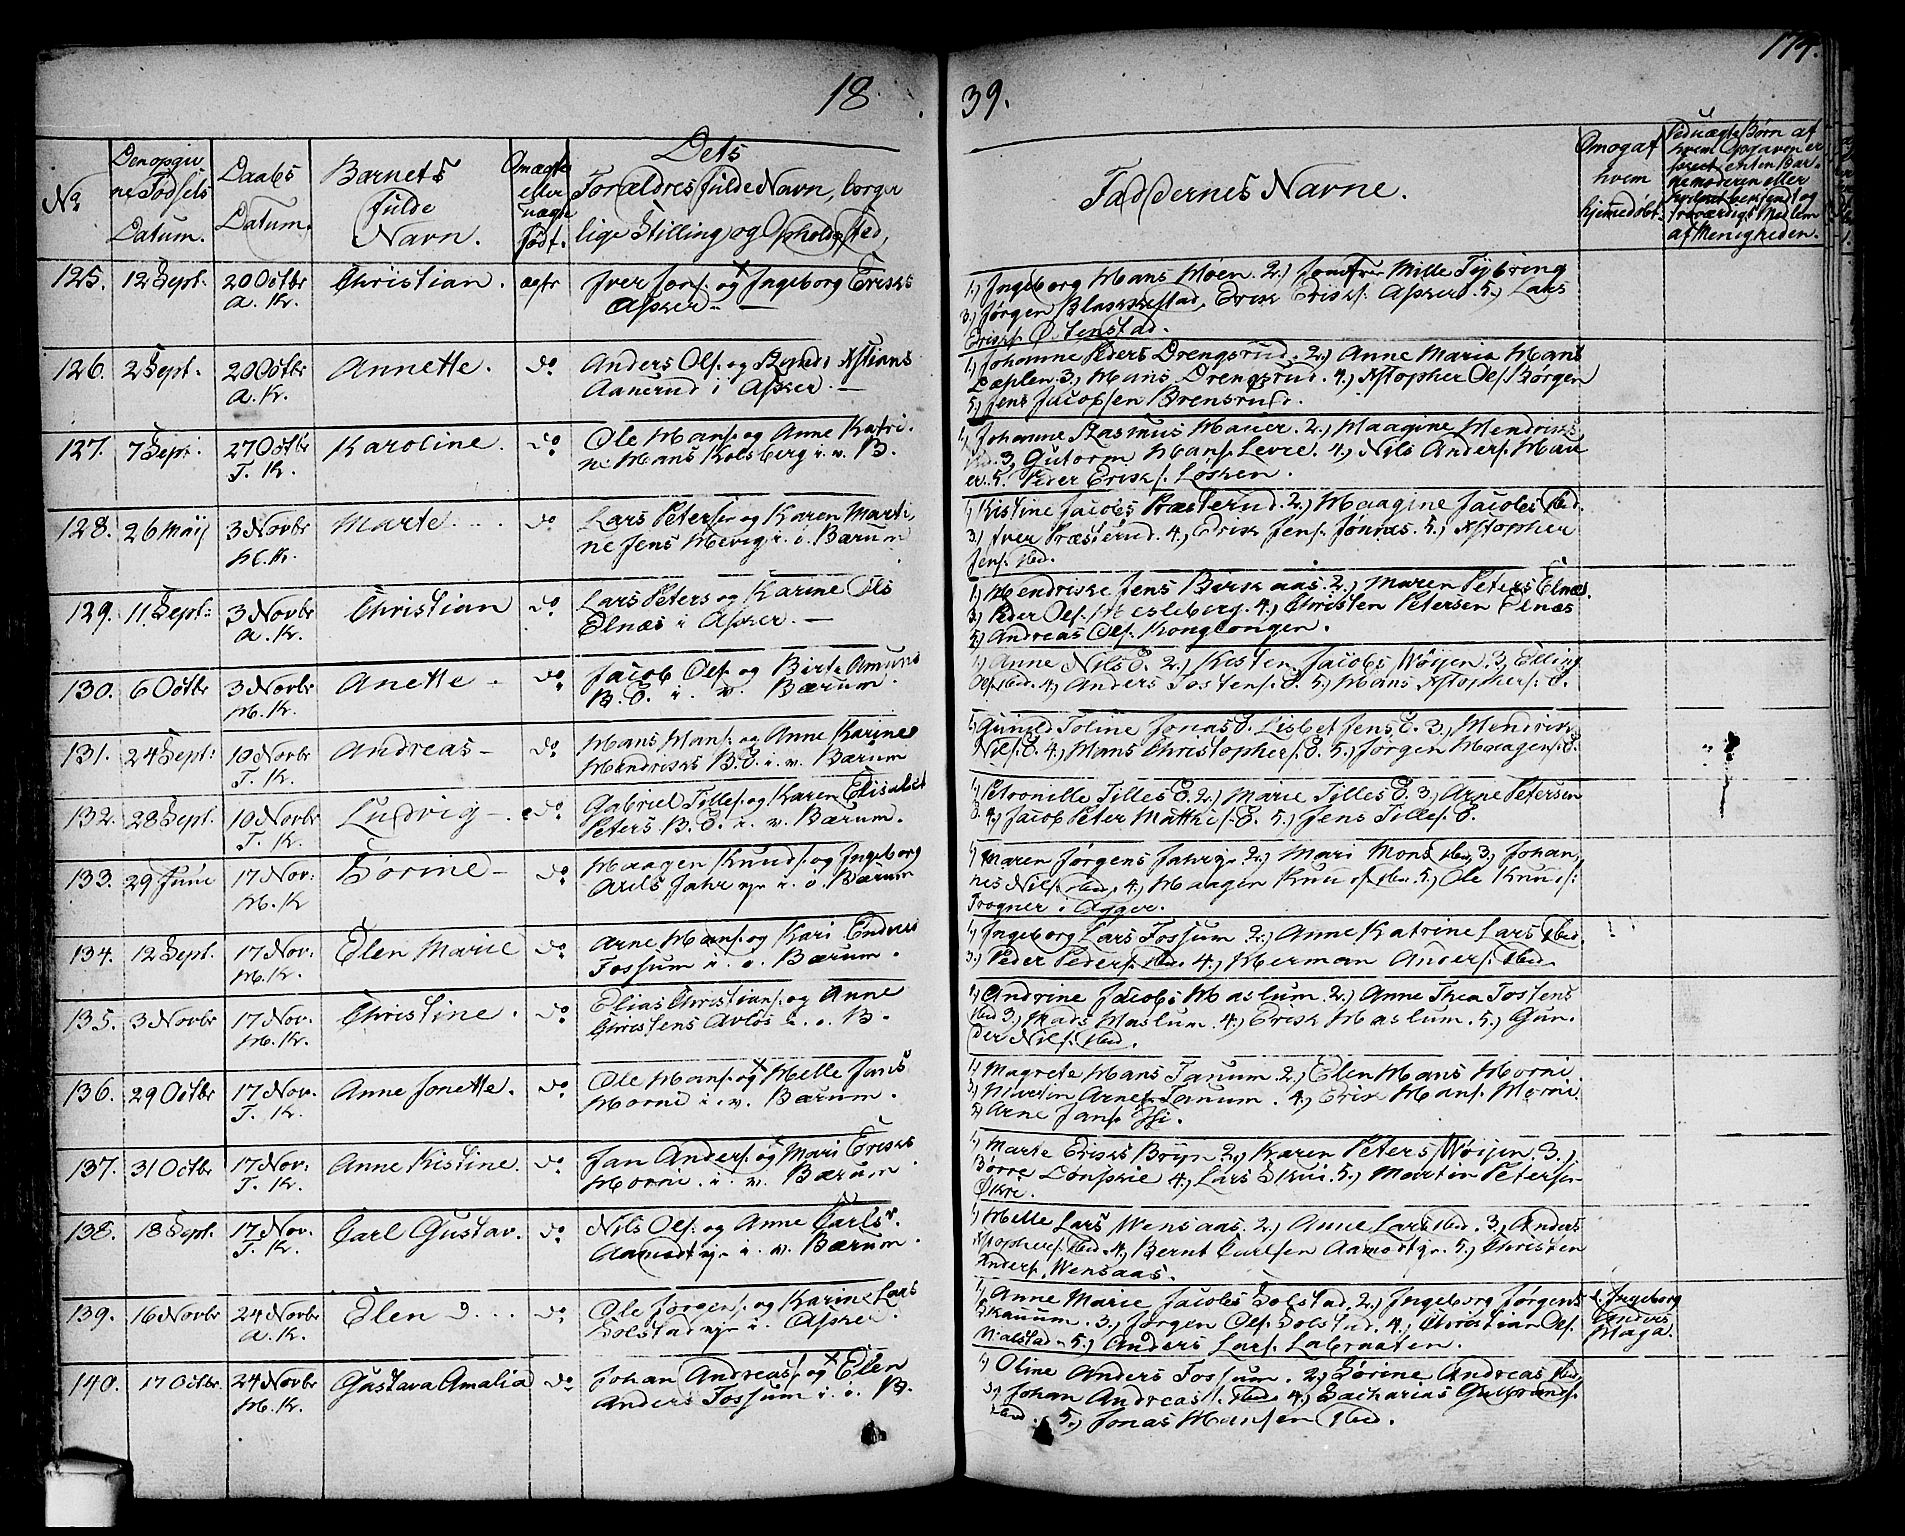 174.
18 39.
No
Den opgiv
ne Fødsels
Datum.
Daabs
Datum.
Barnets
fulde
Navn.
Omægte
eller
uægte
født.
Dets
Forældres fulde Navn, borger
lige Stilling og Opholdsted,
Faddernes Navne.
Om og af
hvem
hjemedøbt.
Ved uægte Børn af
hvem Opgaven er
skeet enten Bar-
nemoderen eller
troværdigt Medlem
af Menigheden.
125. 12 Sept. 20 Octbr Christian. ægte Iver Jors. og Ingeborg Eriks
A. K. Asker. —
1, Ingeborg Hans Moen. 2,) Jomfru Mille Tybring
3,) Jørgen Blakkestad, Erik Eriks. Asker. 5,) Lars
Eriks. Østenstad.
126. 2 Sept. 20 Octbr Annette. do Anders Ols. og Xstians
A. K. Aanerud i Asker. —
1,) Johanne Peders Drengsrud. 2,) Anne Maria Hans
3,) Hans Drengsrud. 4,) Xstopher Ols. Børgen
5,) Jens Jacobsen Brensrud.
127. 7 Sept. 27 Octbr Karoline. do Ole Hans. og Anne Katri-
T. K. ne Hans Kolsberg i v. B.
1,) Johanne Rasmus Hauer. 2,) Maagine Hendriks
ibid. 3, Gutorm Hans. Levre. 4,) Nils Anders. Hau
er. 5. Peder Eriks. Løken.
128. 26 Maij 3 Novbr Marte. do Lars Petersen og Karen Marti
H. K. ne Jens Hevig i. ø. Bærum
1,) Kistine Jacobs Præsterud. 2,) Maagine Jacobs ibid.
3,) Iver Præsterud. 4,) Erik Jens. Jonas. 5,) Xstopher
Jens. ibid.
129. 11 Sept. 3 Novbr Christian do Lars Peters og Karine Ols
A. K. Elnæs i Asker. —
1,) Hendrikke Jens Birkaas. 2,) Maren Peters Elnæs.
3,) Peder Ols. Hesleberg. 4,) Christen Petersen Elnæs
5,) Andreas Ols. Konglongen.
130. 6 Octbr 3 Novbr Anette do Jacob Ols. og Birte Amuns
H. K. B. E. i. v. Bærum.
1,) Anne Nils E. 2,) Kisten Jacobs Wøijen. 3, Elling
Ols. ibid. 4,) Anders Tostens. E. 5,) Hans Xstophers. E.
131. 24 Sept: 10 Novbr Andreas do Hans Hans. og Anne Karine
T. K. Hendriks B. E. i. v. Bærum
1,) Gunild Toline Jonas E. Lisbet Jens E. 3,) Hendrik
Nils. E. 4,) Hans Christophers. E. 5,) Jørgen Haagens. E.
132. 28 Sept. 10 Novbr Ludvig do Gabriel Tilles. og Karen Elisabet
T. K. Peters B. E. i. v. Bærum.
1,) Petronille Tilles E. 2,) Marie Tilles E. 3,) Arne Petersen
E. 4,) Jacob Peter Matthis. E. 5,) Jens Tilles. E.
133. 29 June 17 Nov. Sørine do Haagen Knuds. og Ingeborg
H. K Arils Jahr eje i. ø. Bærum
1,) Maren Jørgens Jahreje 2,) Mari Mons ibid. 3,) Johan
nes Nils. ibid. 4,) Haagen Knuds. ibid. 5,) Ole Knuds.
Frogner i Agger.
134. 12 Sept. 17 Nov. Elen Marie do Arne Hans. og Kari Endres
H. K. Fossum i. ø. Bærum.
1,) Ingeborg Lars Fossum 2,) Anne Katrine Lars ibid.
3,) Peder Peders. ibid. 4,) Herman Anders. ibid.
135. 3 Novbr 17 Nov. Christine. do Elias Christians. og Anne
H. K. Christens Avløs i. ø. B.
1,) Andrine Jacobs Haslum. 2,) Anne Thea Tostens
ibid 3,) Mads Haslum. 4,) Erik Haslum. 5,) Gun-
der Nils. ibid.
136. 29 Octbr 17 Nov. Anne Jonette. do Ole Hans. og Helle Jans
T. K. Horni i. v. Bærum.
1,) Magrete Hans Tanum. 2,) Elen Hans Horni
3,) Martin Arnes. Tanum. 4,) Erik Hans. Horni
5,) Arne Jans. Hsi.
137. 31 Octbr 17 Nov. Anne Kistine. do Jan Anders. og Mari Eriks
T. K. Horni. i. v. Bærum
1,) Marte Eriks Bryn 2,) Karen Peters Wøijen. 3,)
Børre Lonskie 4,) Lars Skui. 5,) Martin Petersen
Økri.
138. 18 Sept. 17 Nov. Carl Gustav. do Nils Ols. og Anne Carls
T. K. Aamodt eje i. v. Bærum.
1,) Helle Lars Wensaas. 2,) Anne Lars ibid. 3,) Anders
Xstophers. ibid. 4,) Bernt Carlsen Aamodt eje. 5,) Christen
Anders. Wensaas.
139. 16 Novbr 24 Novbr Elen do Ole Jørgens. og Karine Lars
A. K. Solstad eje i. Asker.
1,) Anne Marie Jacobs Solstad. 2,) Ingeborg Jørgens
Skauum. 3,) Jørgen Ols. Solstad. 4,) Christian Ols.
Hvalstad. 5,) Anders Lars. Labraaten.
af Ingeborg
Anders
Haga.
140. 17 Octbr. 24 Novbr Gustava Amalia do Johan Andreas. og Elen
H. K. Anders Fossum i. ø. B.
1,) Oline Anders Fossum. 2,) Sørine Andreas ibid.
3,) Johan Andreas. ibid. 4,) Zacharias Gulbrands.
ibid. 5,) Jonas Hansen ibid.